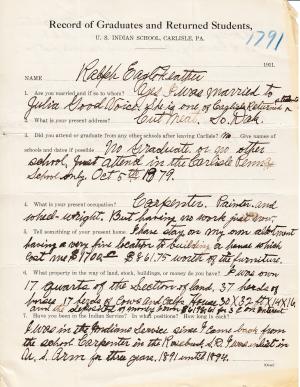 Record of Graduates and Returned Students,
U. S. INDIAN SCHOOL, CARLISLE, PA.
1791
1911.
NAME Ralph Eagle Feather
1. Are you married and if so to whom? Yes I was married to
Julia Good Voice. She is one of Carlisle Returned students
2. What is your present address? Cut Meat, So. Dak.
3. Did you attend or graduate from any other schools after leaving Carlisle? No Give names
of schools and dates if possible No Graduate or no other
school, Just attend in the Carlisle Penna
School only Oct 5th 1879.
4. What is your present occupation? Carpenter, Painter and
wheel-wright. But having no work just now.
5. Tell something of your present home. I have stay on my own allotment
having a very fine location to building a house which
cost me $1700 $61.75 worth of the furniture.
6. What property in the way of land, stocks, buildings or money do you have? I was own
17 quarters of the Section of land, 37 herds of
horses 17 herds of Cows and calfs House 30 X 32 ft X 14 X 16,
and the deposited of money for 3% on interest
7. Have you been in the Indian Service? In what positions? How long in each?
I was in the Indians Service since I came back from
the school Carpenter in the Rosebud, S.D. I was inlist in
U. S. Arm for three years, 1891 until 1894.